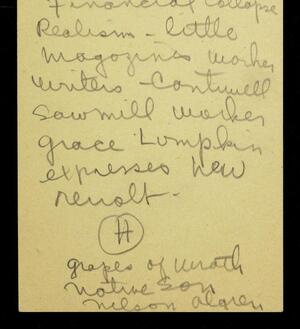 Financial collapse
Realism - little
magazines worker
writers - Cantwell
sawmill worker
grace Lumpkin
expresses new
revolt -
H
grapes of wrath
native son
nelson algren